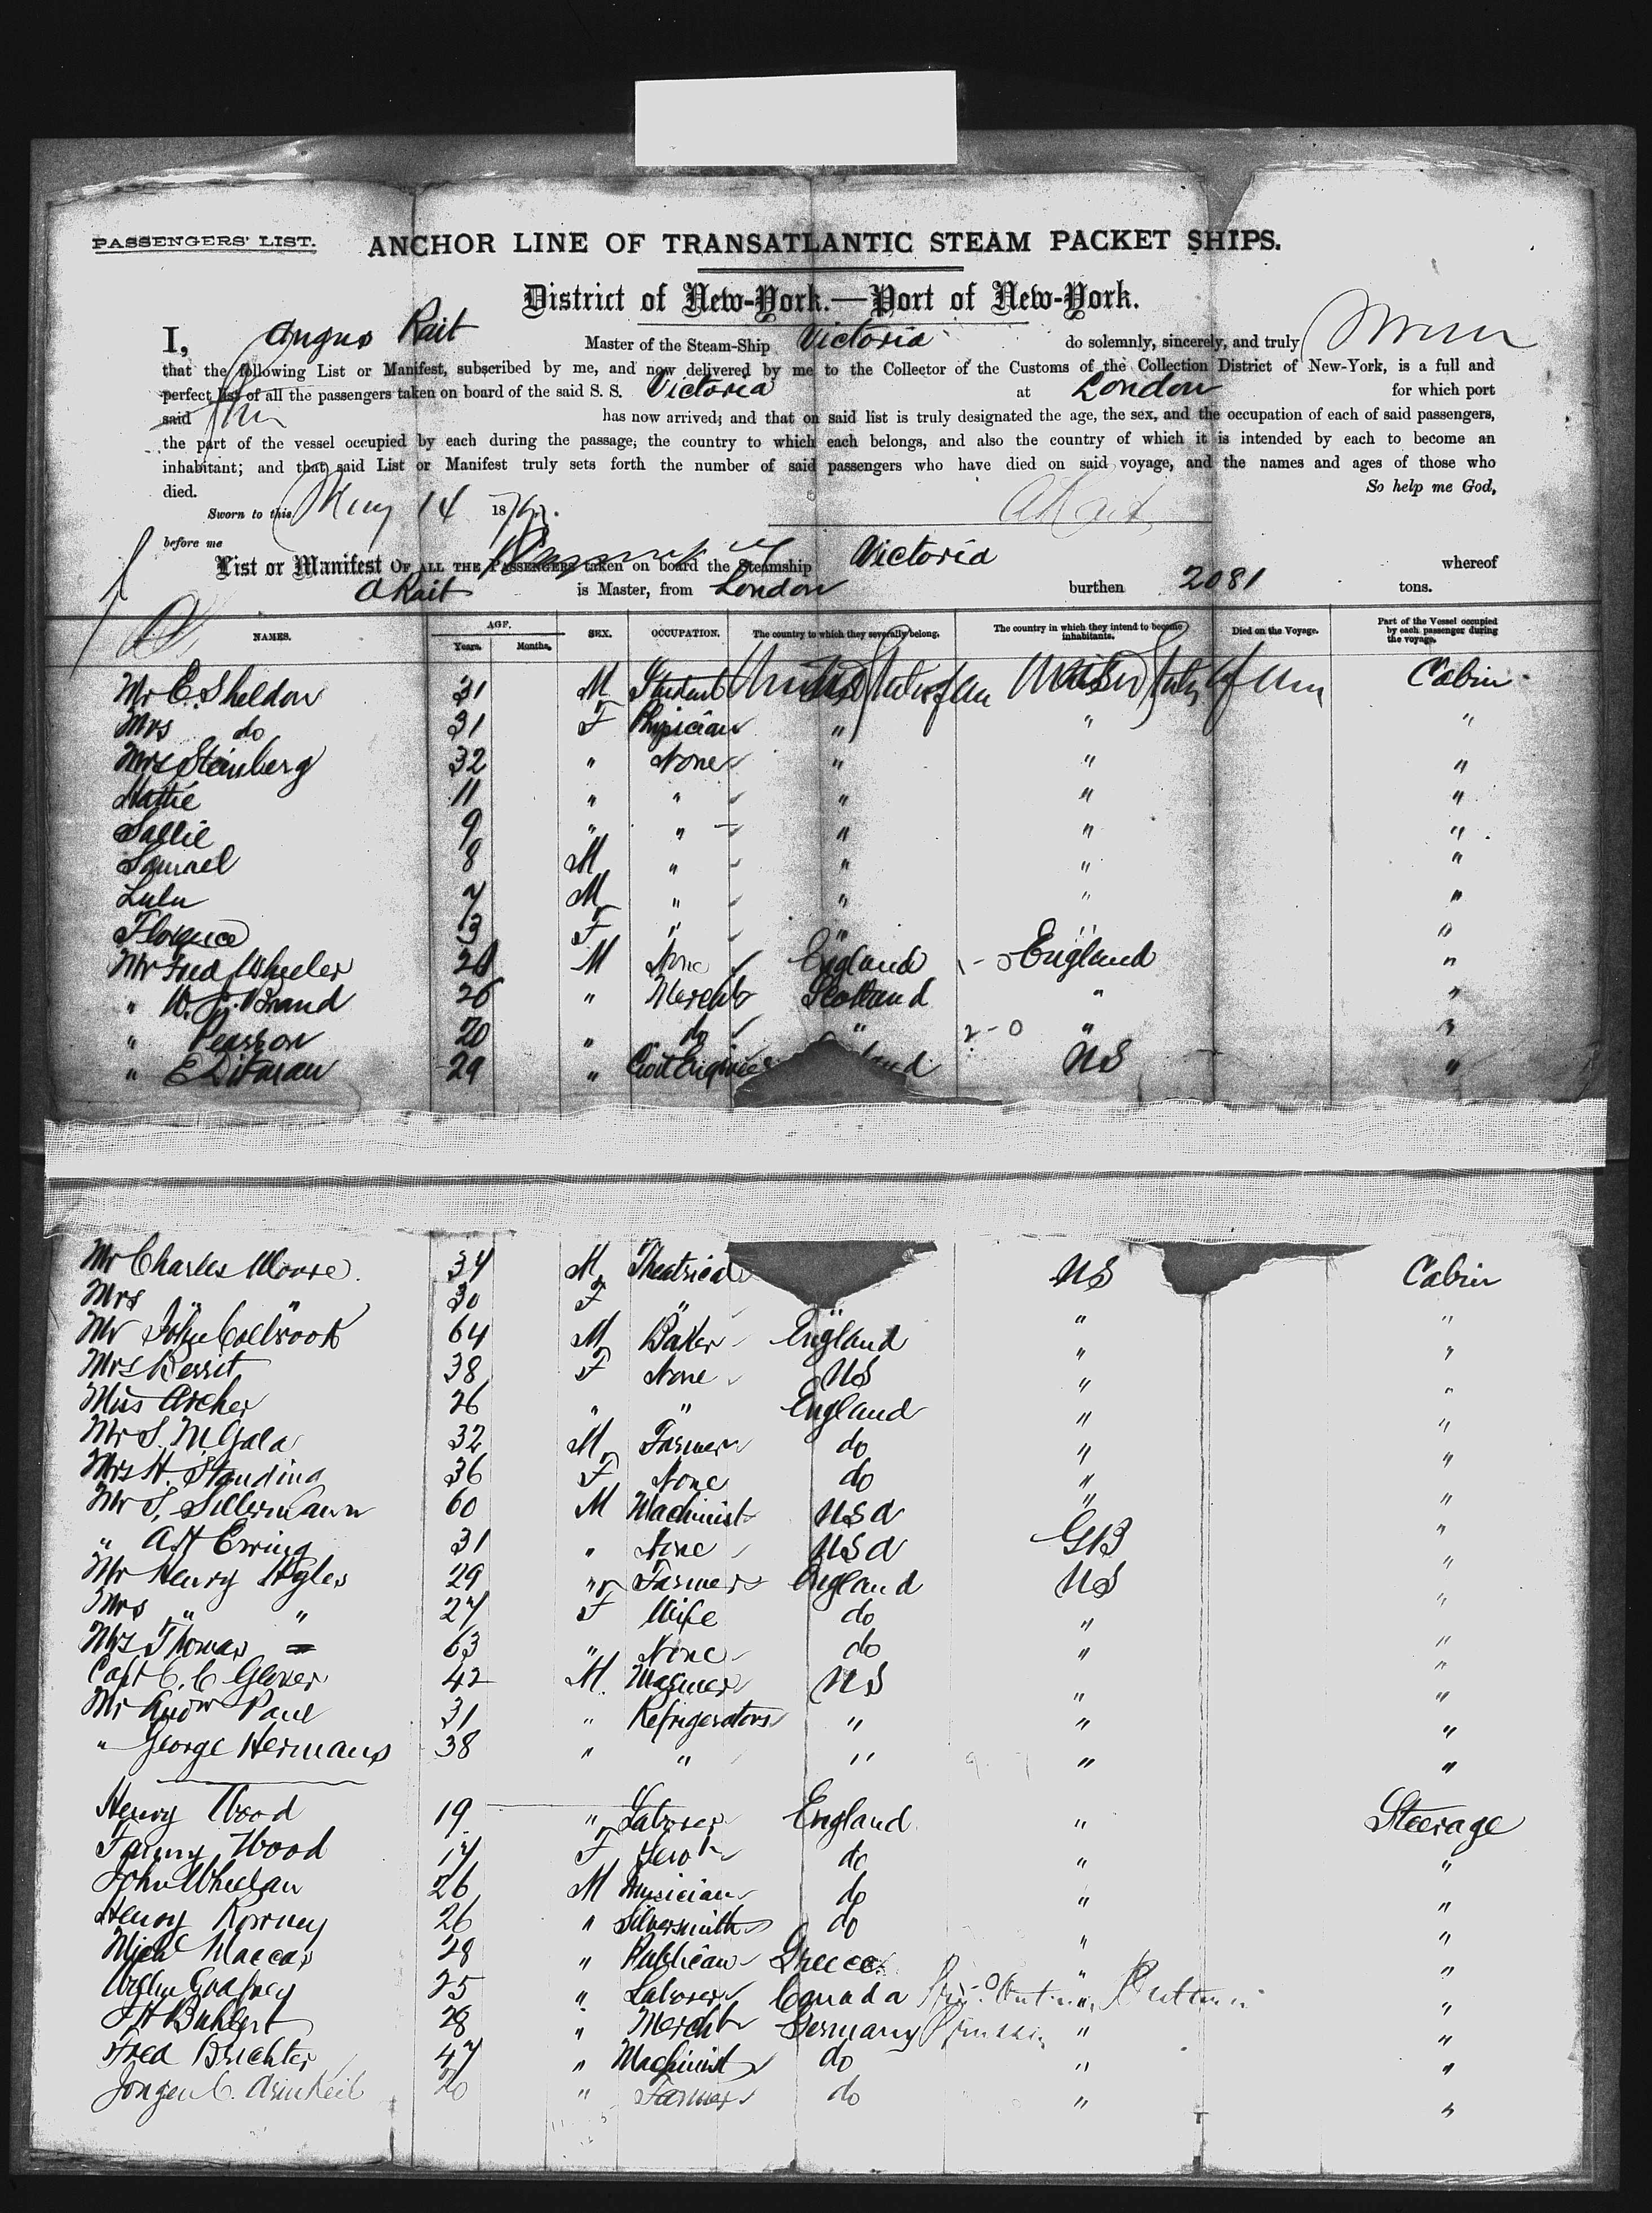 PASSENGERS' LIST.
ANCHOR LINE OF TRANSATLANTIC STEAM PACKET SHIPS.
District of New-York.—Port of New-York.
I, Angus Rait Master of the Steam-Ship Victoria do solemnly, sincerely, and truly
that the following List or Manifest, subscribed by me, and now delivered by me to the Collector of the Customs of the Collection District of New-York, is a full and
perfect list of all the passengers taken on board of the said S. S. Victoria at London for which port
said has now arrived; and that on said list is truly designated the age, the sex, and the occupation of each of said passengers,
the part of the vessel occupied by each during the passage, the country to which each belongs, and also the country of which it is intended by each to become an
inhabitant; and that said List or Manifest truly sets forth the number of said passengers who have died on said voyage, and the names and ages of those who
died. So help me God,
Sworn to this May 14 18 ARait
before me
List or Manifest OF ALL THE PASSENGERS taken on board the Steamship Victoria whereof
ARait is Master, from London burthen 2081 tons.
NAMES. AGE. Years. Months. SEX. OCCUPATION. The country to which they severally belong. The country in which they intend to become inhabitants. Died on the Voyage. Part of the Vessel occupied by each passenger during the voyage.
Mr E. Sheldon 31 M Student United States of Am United States of Am Cabin
Mrs do 31 F Physician " " "
Mrs Steinberg 32 " None " " "
Hattie 11 " " " " "
Sallie 9 " " " " "
Samuel 8 M " " " "
Lulu 7 M " " " "
Florence 3 F " " " "
Mr Fred Wheeler M None England England "
" W. Brand 26 " Mercht Scotland " "
" Pearson 20 " do " 2-0 " "
" E Ditman 29 " Civil Engineer US "
Mr Charles Moore. 34 M Theatrical US Cabin
Mrs " " 30 F " " " "
Mr John Colbrook 64 M Baker England " "
Mrs 38 F None US " "
Miss Archer 26 " " England " "
Mr S. McGala 32 M Farmer do " "
Mrs H. Standing 36 F None do " "
Mr S. Sillermann 60 M Machinist USA " "
" A.H Ewing 31 " None USA GB "
Mr Henry 29 " Farmer England US "
Mrs " " 27 F Wife do " "
Mrs Thomas 63 " None do " "
Capt C. C Glover 42 M. Mariner US " "
Mr Andw Paul 31 " Refrigerators " " "
" George Hermans 38 " " " " "
Henry Wood 19 " Laborer England " Steerage
Fanny Wood 17 F Servt do " "
John Whelan 26 M Musician do " "
Henry 26 " Silversmith do " "
Michl Maccas 28 " Publican Greece " "
25 " Laborer Canada " "
28 " Mercht Germany Prussia " "
Fred 47 " Machinist do " "
Jorgen C. 20 " Farmer do " "